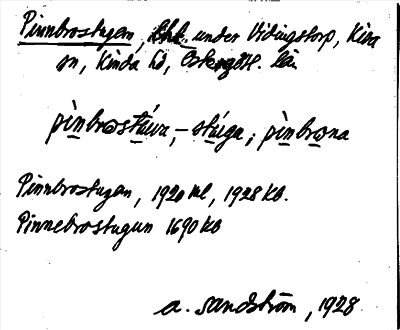 Pinnbrostugan, lhk. under Vidingstorp, Kisa
sn, Kinda hd, Östergötl. län
pìnbrostúwa, – stúga; pìnbrona
Pinnbrostugan, 1920 ml, 1928 kb.
Pinnebrostugun 1690 kb
A. Sandström, 1928